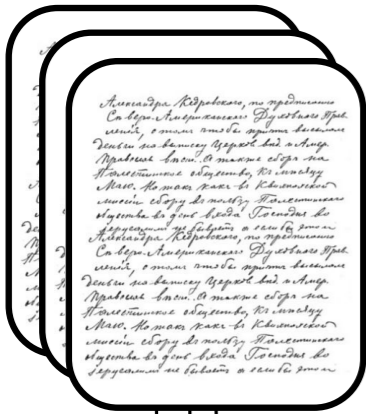 Александра Кедровского, по предписанию
Северо-Американскаго Духовнаго Прав
ленія, о томъ чтобы причтъ высылалъ
деньги на выписку Церков. вѣд. и Амер.
Правосл. вѣст. А также сбора на
Палестинское общество, къ мѣсяцу
Маю. Но такъ какъ въ Квихпахской
миссіи сбору въ пользу Палестинскаго
общества въ день входа Господня во
Александра Кедровского, по предписанию
Северо-Американскаго Духовнаго Прав
ленія, о томъ чтобы причтъ высылалъ
деньги на выписку Церков. вѣд. и Амер.
Правосл. вѣст. А также сбора на
Палестинское общество, къ мѣсяцу
Маю. Но такъ какъ въ Квихпахской
миссіи сбору въ пользу Палестинскаго
общества въ день входа Господня во
Іерусалимъ не бываетъ а если бы этотъ